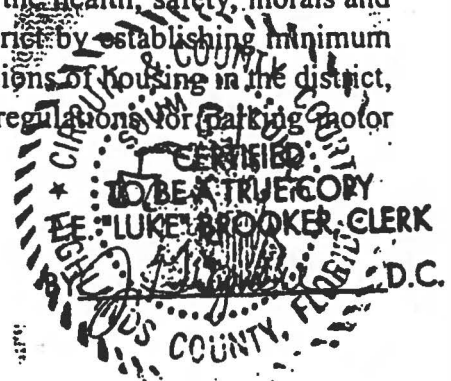 the health, safety, morals and
rict by establishing minimum
ions of housing in the district,
regulations for parking motor
CIRCUIT & COUNTY COURT
CERTIFIED
TO BE A TRUE COPY
"LUKE" BROOKER, CLERK
BY D.C.
HIGHLANDS COUNTY, FLORIDA